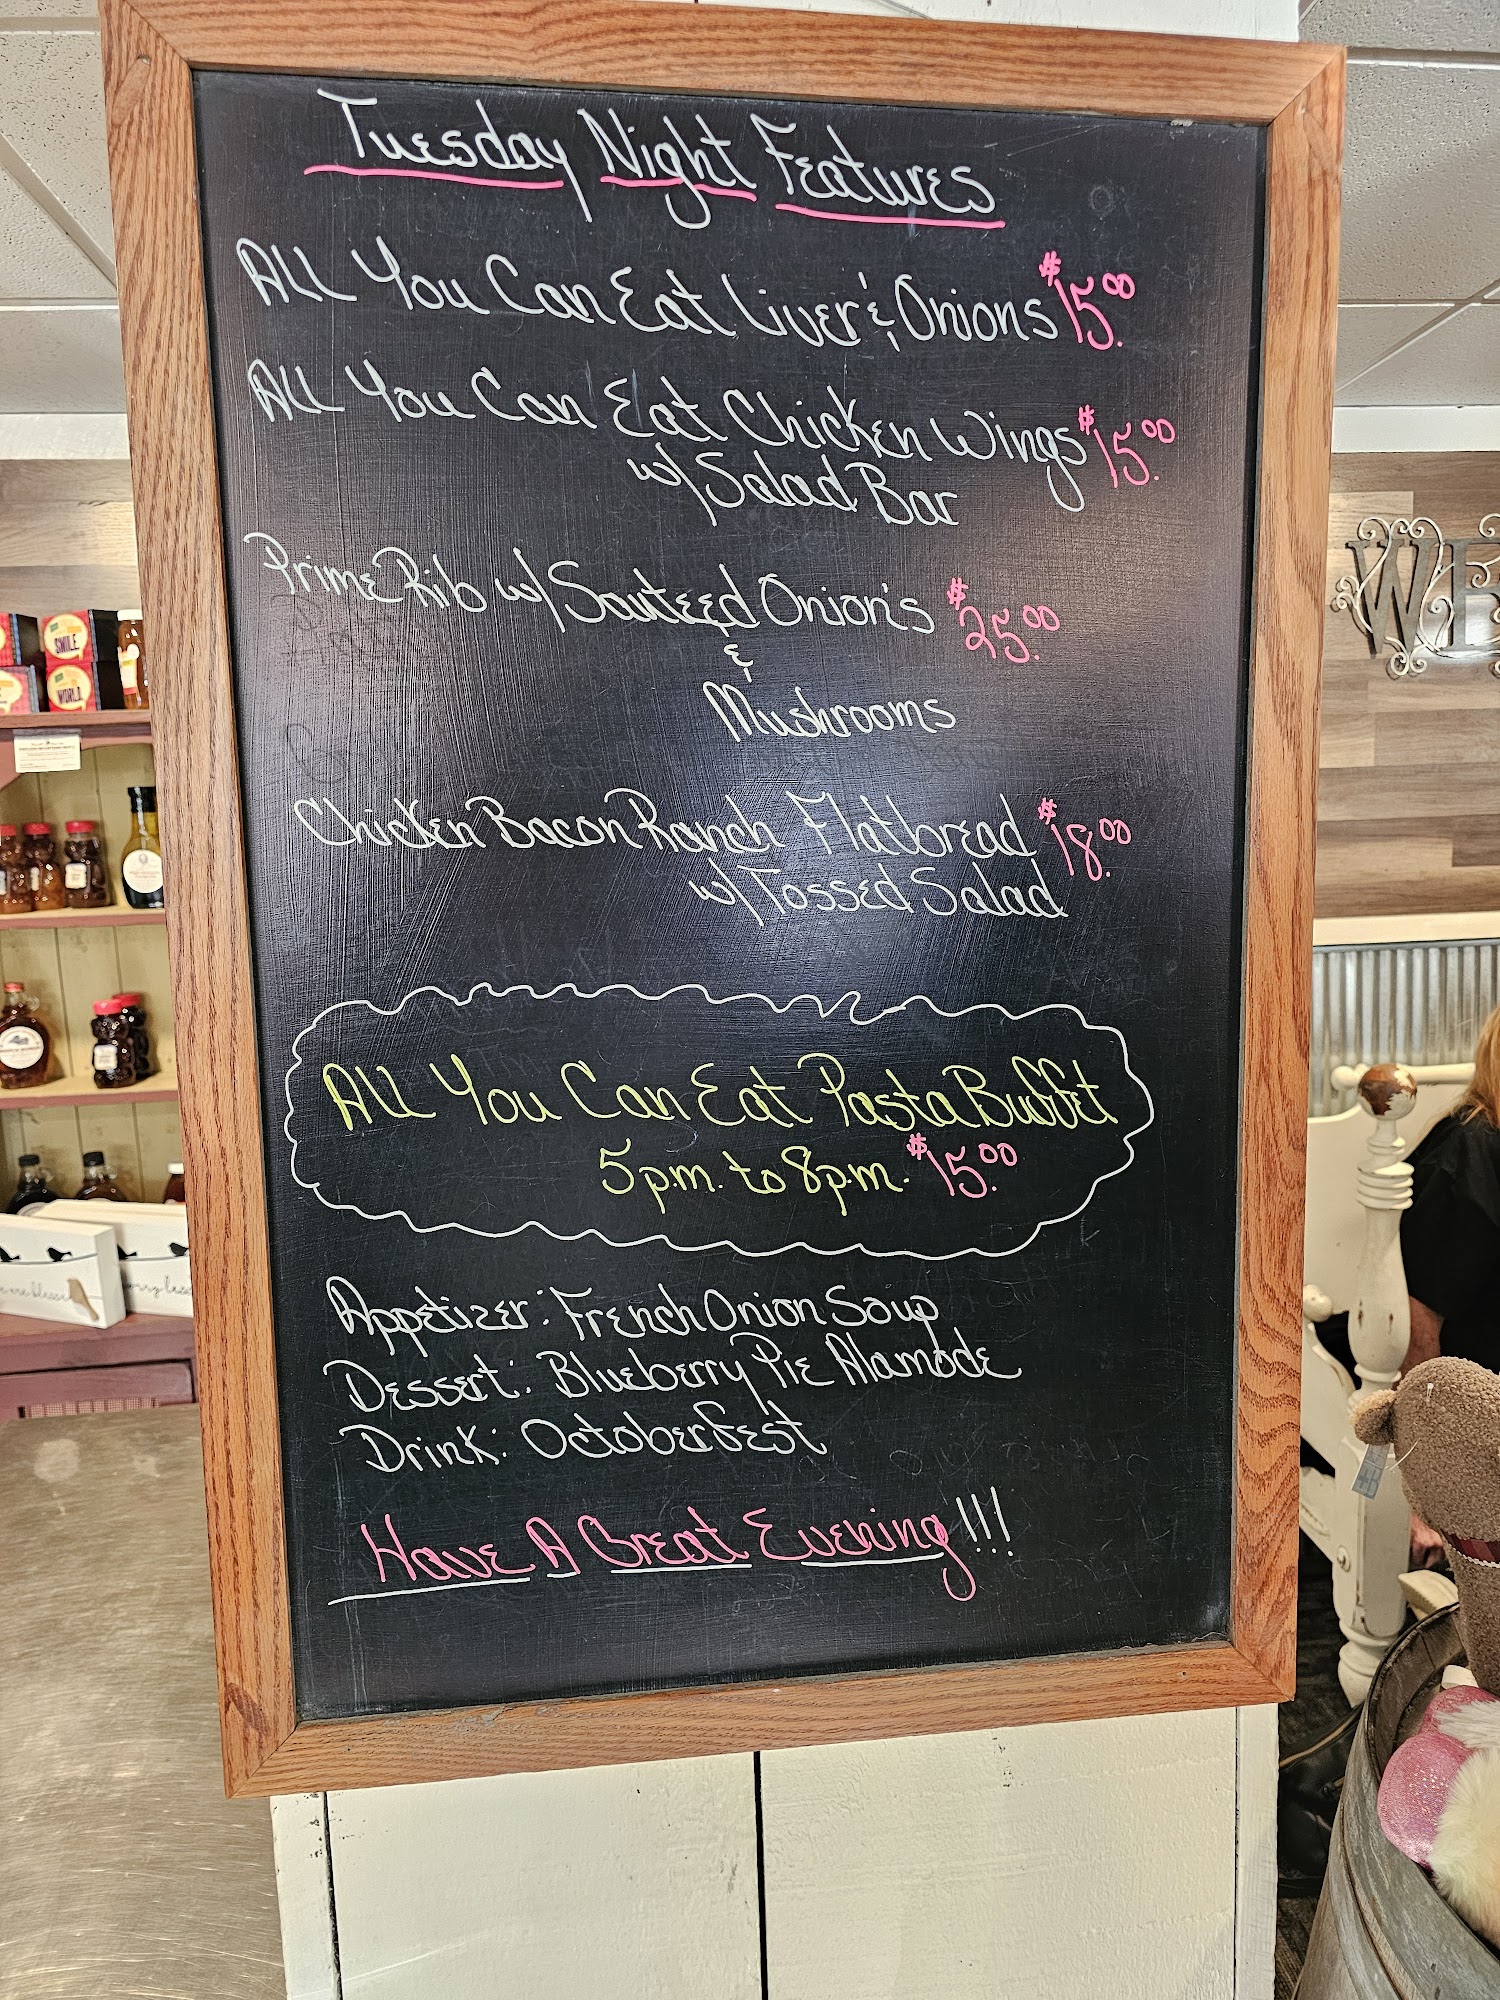 Tuesday Night Features
ALL You Can Eat Liver & Onions $15.00
ALL You Can Eat Chicken Wings $15.00
w/ Salad Bar
Prime Rib w/ Sauteed Onion's $25.00
&
Mushrooms
Chicken Bacon Ranch Flatbread $18.00
w/ Tossed Salad
ALL You Can Eat Pasta Buffet
5p.m. to 8p.m. $15.00
Appetizer: French Onion Soup
Dessert: Blueberry Pie Alamode
Drink: Octoberfest
Have A Great Evening!!!
SMILE
WORLD
WE